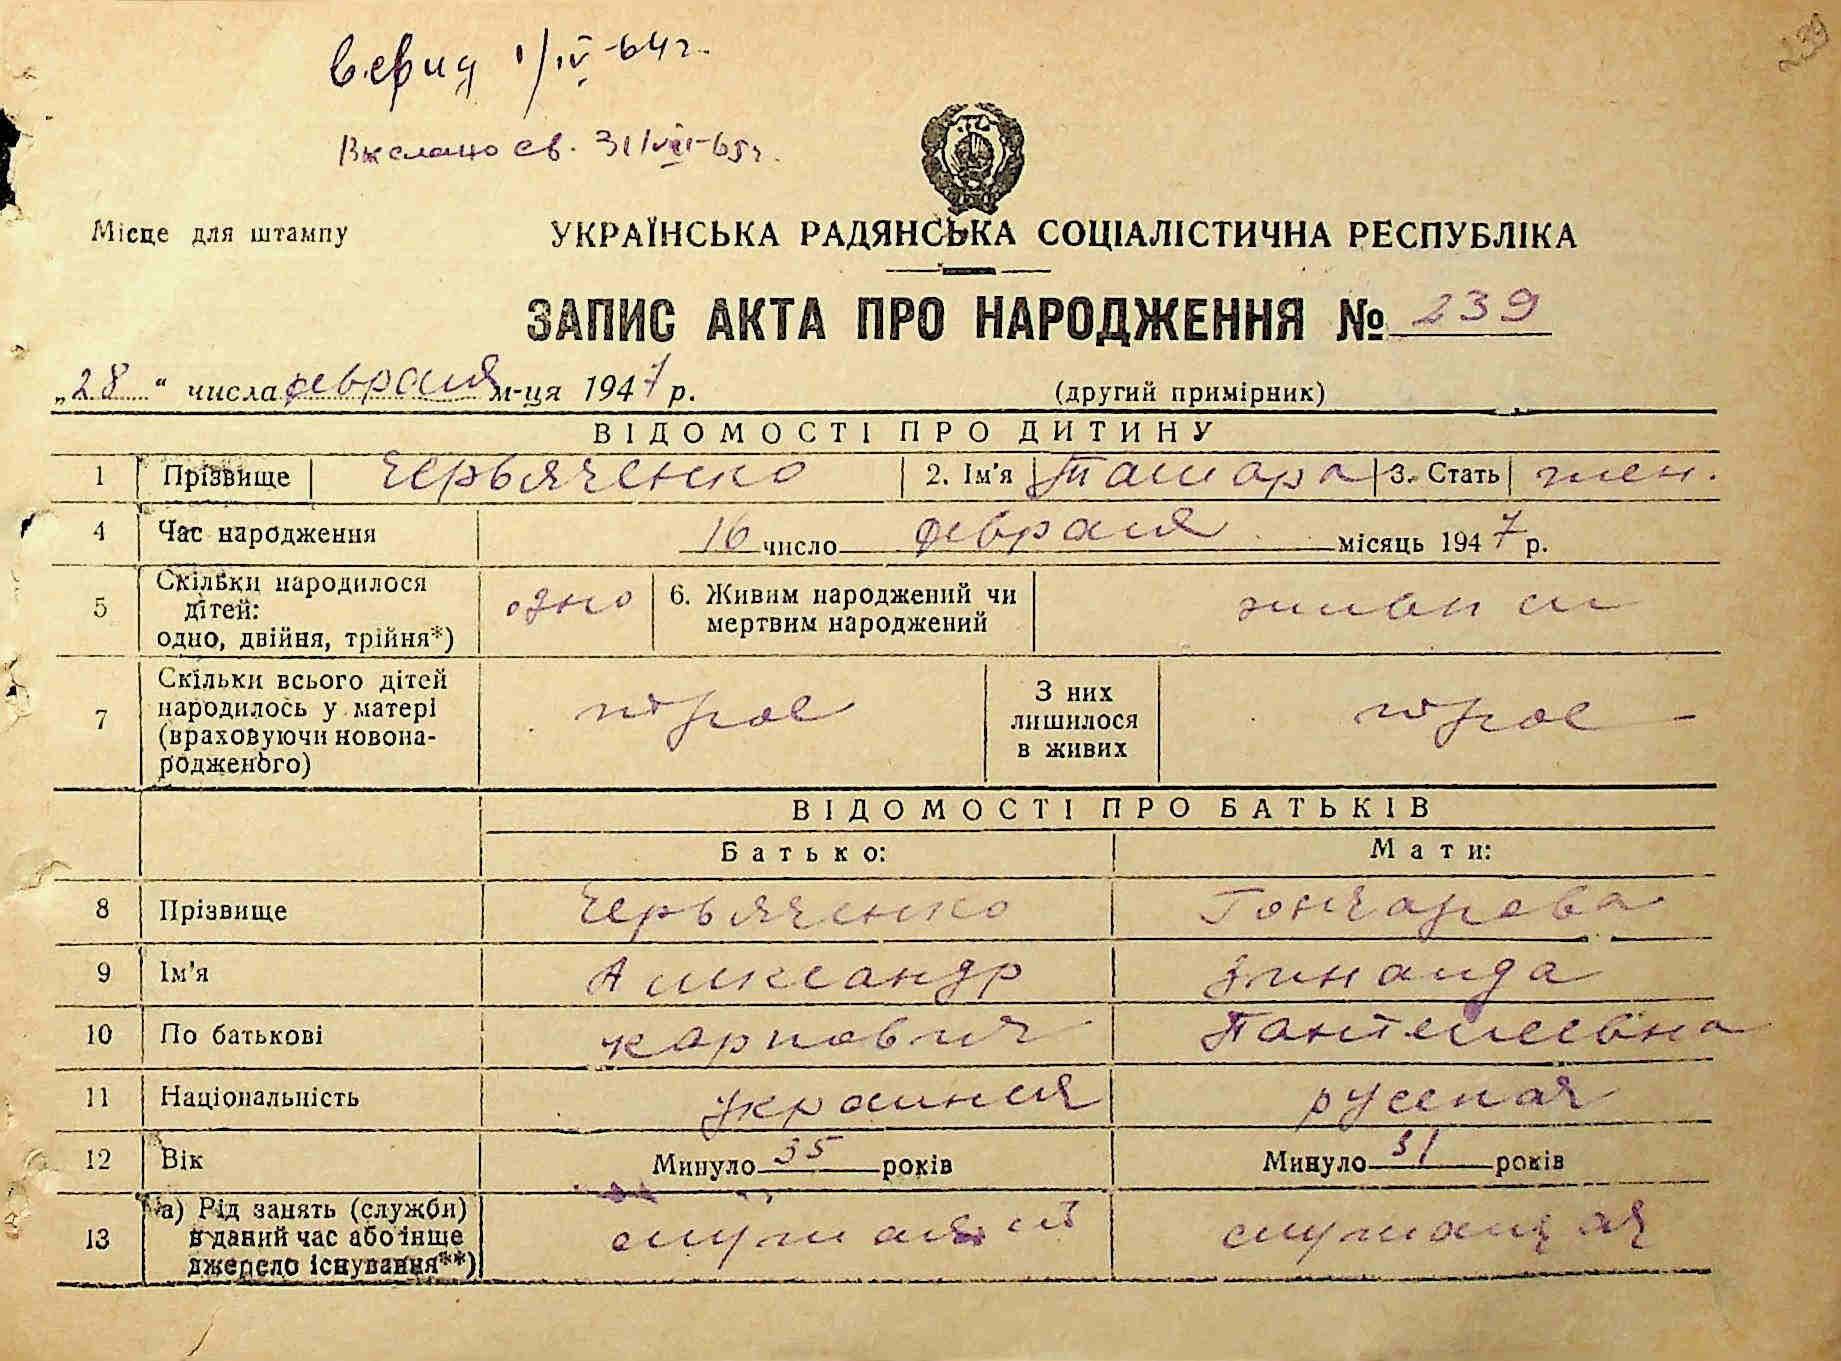 239
I/IV-64 г.
Вислано св. 31/VIII-65 г.
Місце для штампу
УКРАЇНСЬКА РАДЯНСЬКА СОЦІАЛІСТИЧНА РЕСПУБЛІКА
ЗАПИС АКТА ПРО НАРОДЖЕННЯ № 239
„28“ числа февраля м-ця 1947 р.
(другий примірник)
ВІДОМОСТІ ПРО ДИТИНУ
1 Прізвище Червяченко 2. Ім'я Тамара 3. Стать жен.
4 Час народження 16 число февраля місяць 1947 р.
5 Скільки народилося дітей: одно, двійня, трійня*) одно 6. Живим народжений чи мертвим народжений живим
7 Скільки всього дітей народилось у матері (враховуючи новонародженого) трое З них лишилося в живих трое
ВІДОМОСТІ ПРО БАТЬКІВ
Батько: Мати:
8 Прізвище Червяченко Гончарова
9 Ім'я Александр Зинаида
10 По батькові Карпович Пантелеевна
11 Національність украинец русская
12 Вік Минуло 35 років Минуло 31 років
13 а) Рід занять (служби) в даний час або інше джерело існування**) служащий служащая